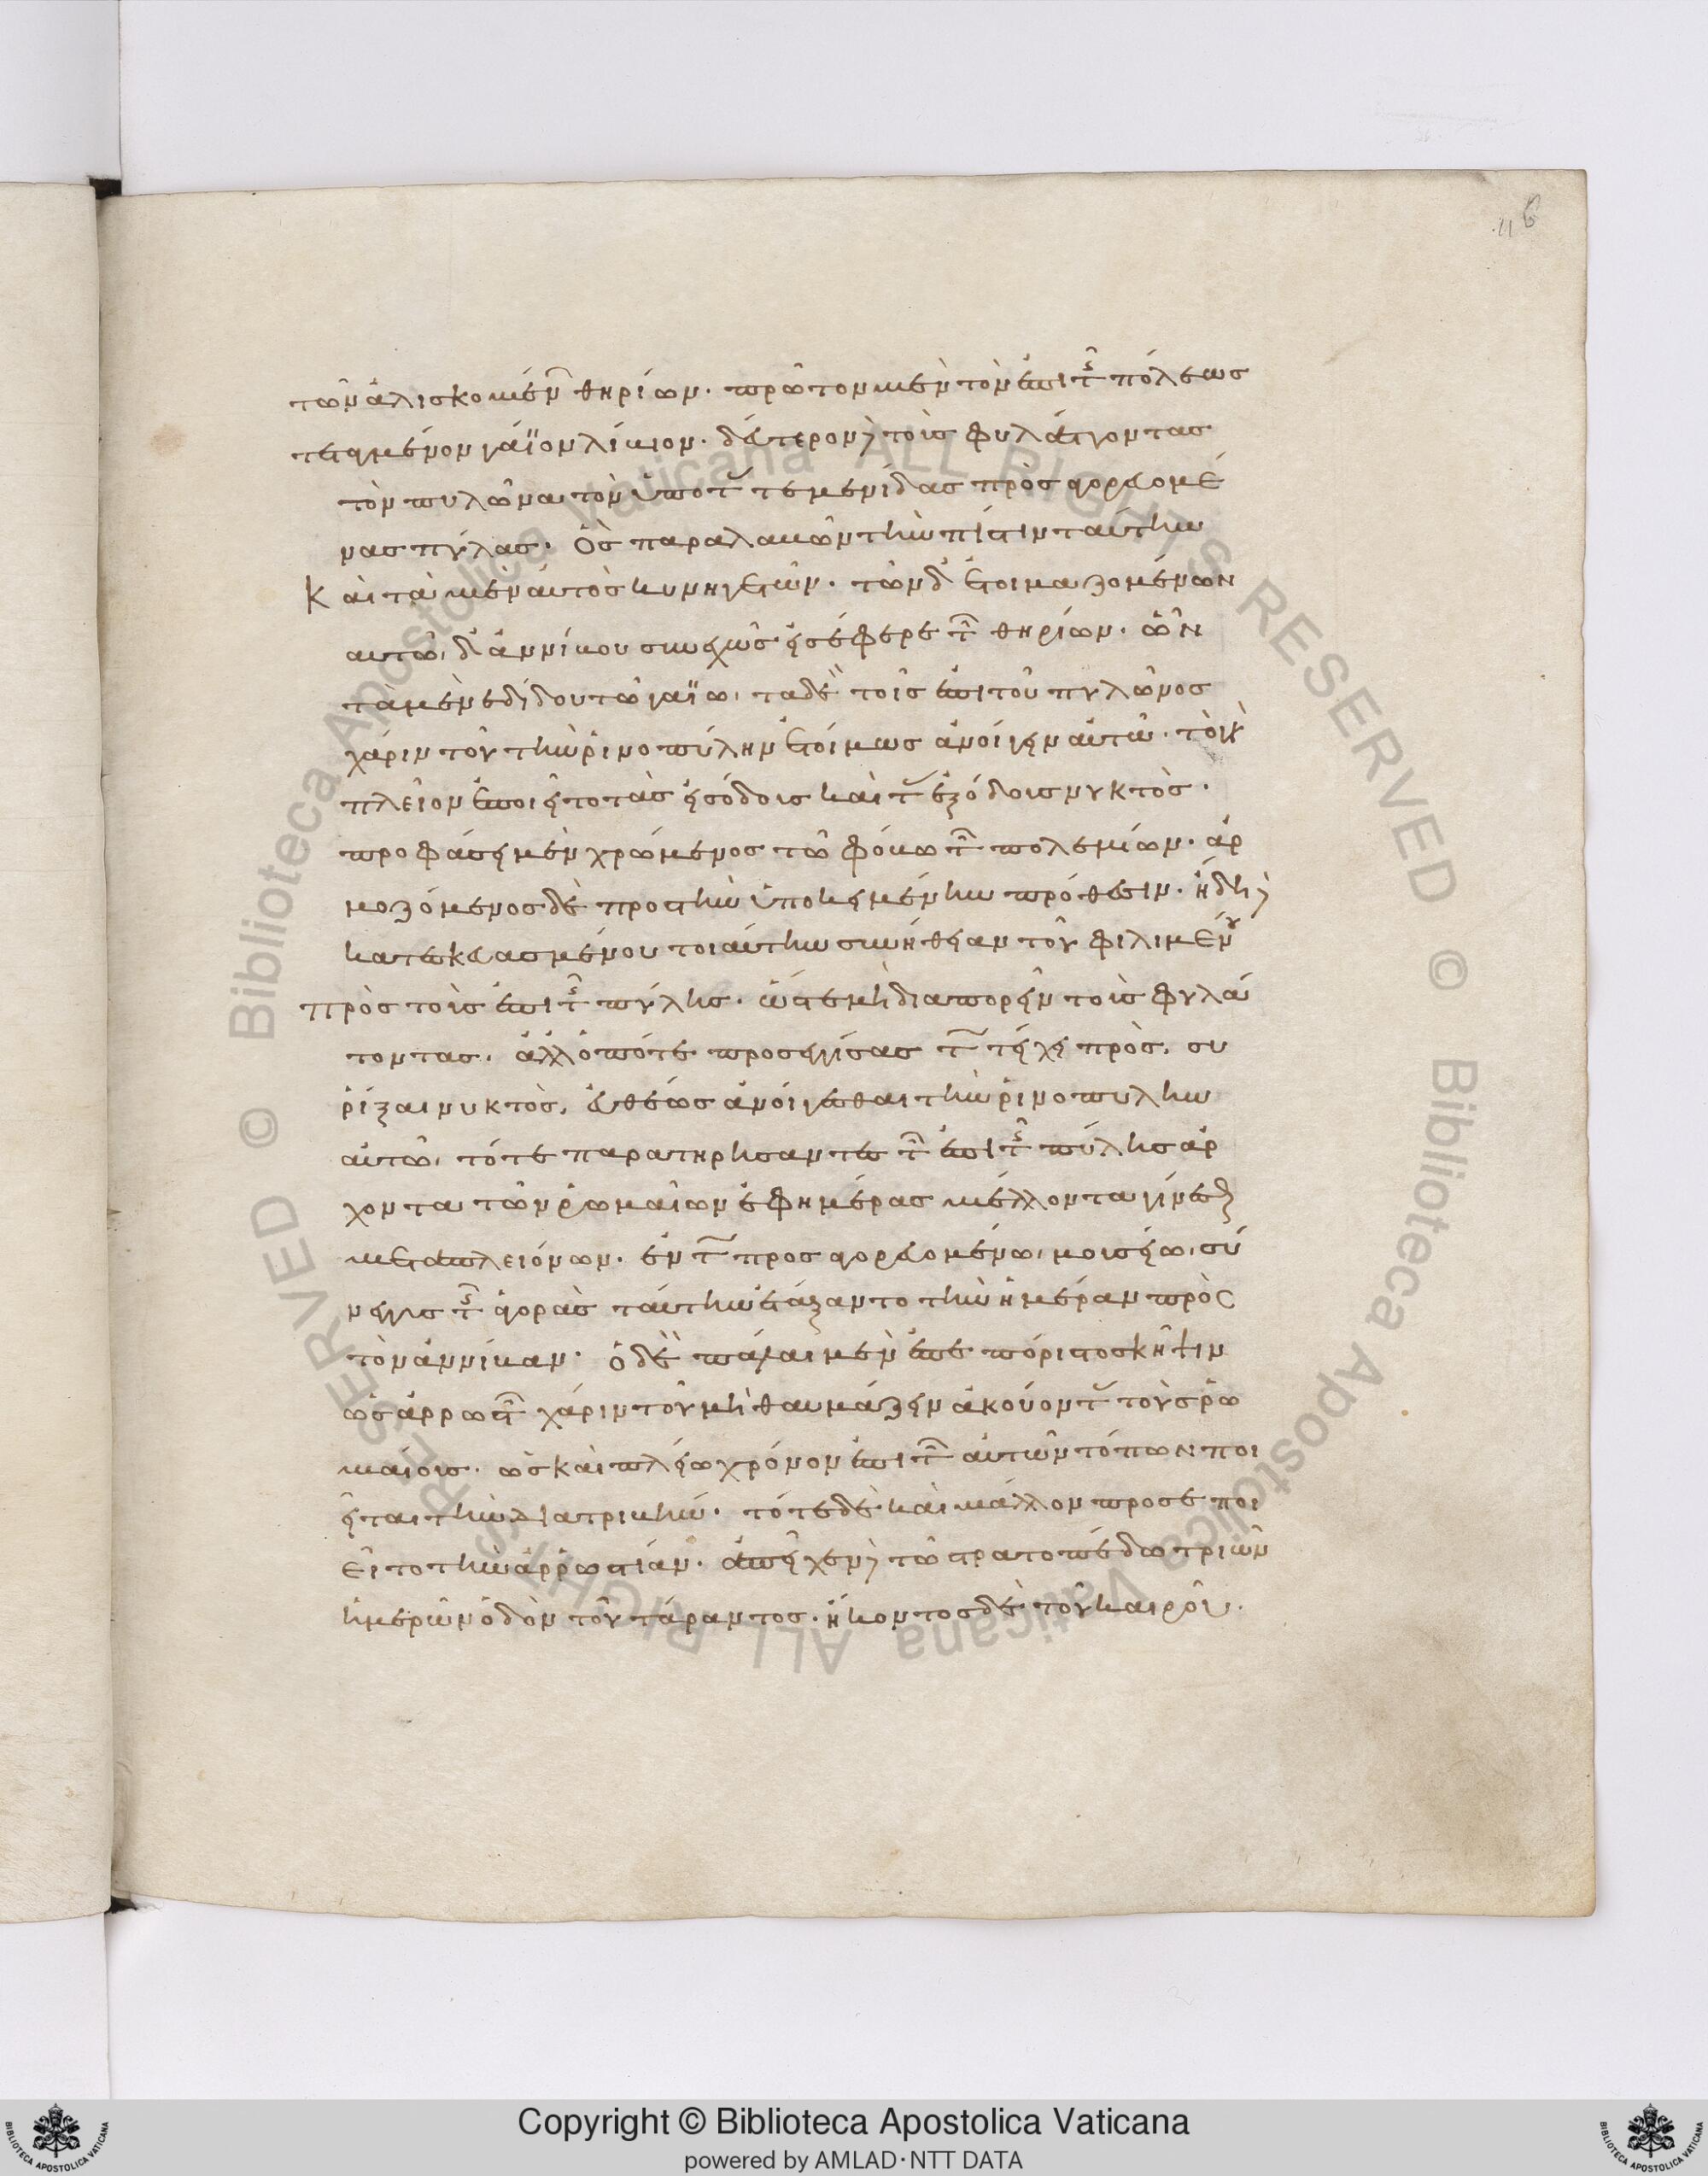 116
τῶν ἁλισκομένων θηρίων· πρῶτον μὲν τὸν ἐπὶ τῆς πόλεως
τεταγμένον γάϊον λίβιον· δεύτερον δὲ τοὺς φυλάττοντας
τὸν πυλῶνα τὸν ὑπὸ τὰς τεμενίδας προσαγορευομέ
νας πύλας. Ὃς παραλαβὼν τὴν πίστιν ταύτην
Καὶ τὰ μὲν αὐτὸς κυνηγετῶν· τῶν δ' ἑτοιμαζομένων
αὐτῶ, δι' ἀννίβου συνεχῶς εἰσέφερε τῶν θηρίων· ὧν
τὰ μὲν ἐδίδου τῶ γαΐω, τὰ δὲ τοῖς ἐπὶ τοῦ πυλῶνος
χάριν τοῦ τὴν ῥινοπύλην ἑτοίμως ἀνοίγειν αὐτῶ· τὸ γὰρ
πλεῖον ἐποιεῖτο τὰς εἰσόδους καὶ τὰς ἐξόδους νυκτὸς·
προφάσει μὲν χρώμενος τῶ φόβω τῶν πολεμίων· ἁρ
μοζόμενος δὲ πρὸς τὴν ὑποκειμένην πρόθεσιν. ἤδη δὲ
κατεσκευασμένου τοιαύτην συνήθειαν τοῦ φιλιμένου
πρὸς τοὺς ἐπὶ τῆς πύλης· ὥστε μὴ διαπορεῖν τοὺς φυλά
τοντας, ἀλλ' ὁπότε προσεγγίσας τῶ τείχει πρὸς, συ
ρίξαι νυκτὸς, εὐθέως ἀνοίγεσθαι τὴν ῥινοπύλην
αὐτῶ, τότε παρατηρήσαντες τὸν ἐπὶ τῆς πύλης ἄρ
χοντα τῶν ῥωμαίων ἐφ' ἡμέρας μέλλοντα γίνεσθαι
μετὰ πλειόνων. ἐν τῶ προσαγορευομένω, μουσείω, σύ
νεγγυς τῆς ἀγορὰς ταύτην ἐτάξαντο τὴν ἡμέραν πρὸς
τὸν ἀννίβαν. Ὁ δὲ πάλαι μὲν ἐπεπόριστο σκῆψιν
ὡς ἀρρωστῶν χάριν τοῦ μὴ θαυμάζειν ἀκούοντας τοὺς ῥω
μαίους. ὡς καὶ πλείω χρόνον ἐπὶ τῶν αὐτῶν τόπων ποι
εῖται τὴν διατριβήν. τότε δὲ καὶ μᾶλλον προσεποι
εῖτο τὴν ἀῤῥωστίαν. ἀπεῖχε δὲ τῶ στρατοπέδω τριῶν
ἡμερῶν ὁδὸν τοῦ τάραντος. ἥκοντος δὲ τοῦ καιροῦ.
Copyright © Biblioteca Apostolica Vaticana
powered by AMLAD·NTT DATA